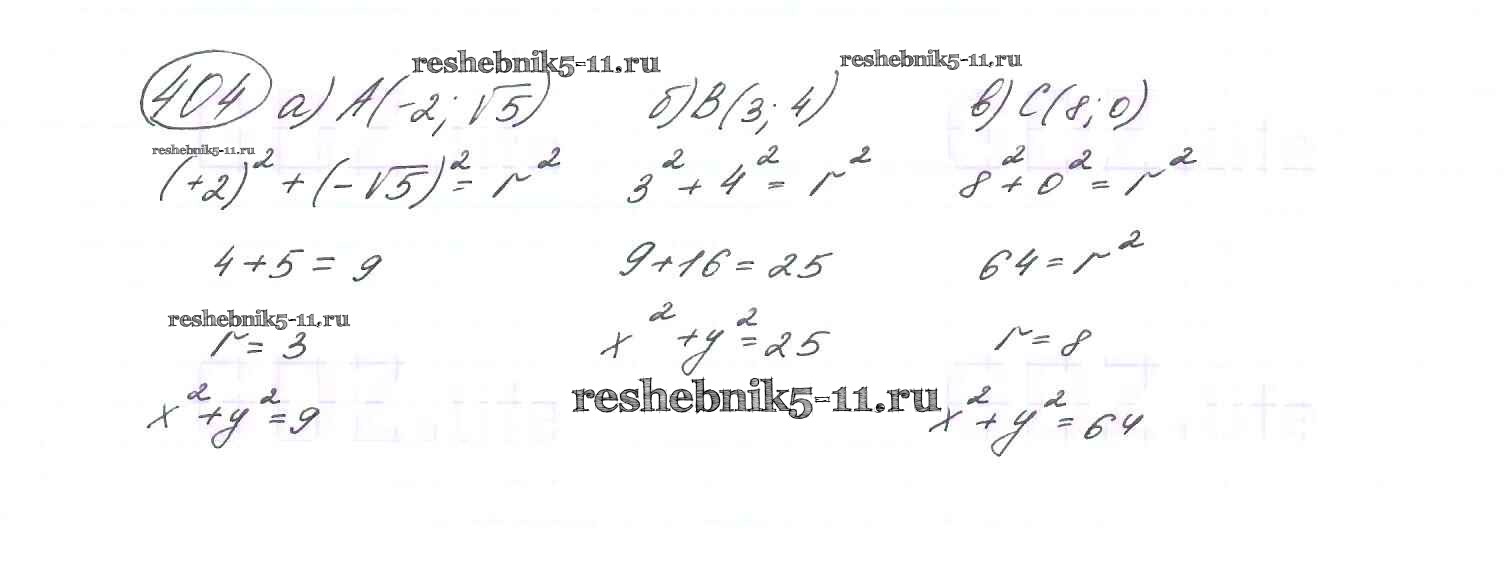 reshebnik5-11.ru reshebnik5-11.ru
404 а) А(-2; √5) б) В(3; 4) в) С(8; 0)
reshebnik5-11.ru
(+2)² + (-√5)² = r² 3² + 4² = r² 8² + 0² = r²
4 + 5 = 9 9 + 16 = 25 64 = r²
reshebnik5-11.ru
r = 3 x² + y² = 25 r = 8
reshebnik5-11.ru
x² + y² = 9 x² + y² = 64